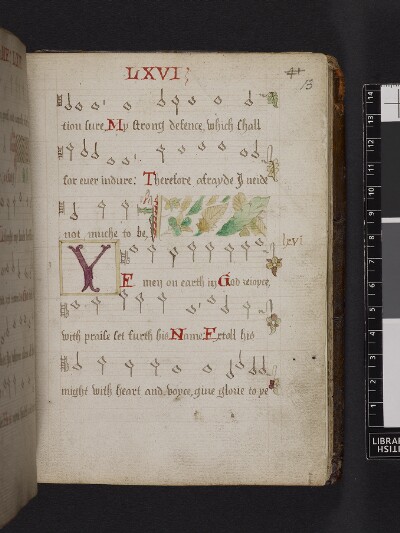 LXVI;
13
tion sure, My strong defence, which shall
for euer indure: Therefore afrayde I neide
not muche to be,
lxvi
YE men on earth in God reioyce,
with praise set furth his Name, Extoll his
might with heart and voyce, giue glorie to ye
14
13
12
11
10
9
8
7
6
5
4
3
2
1
LIBRAR